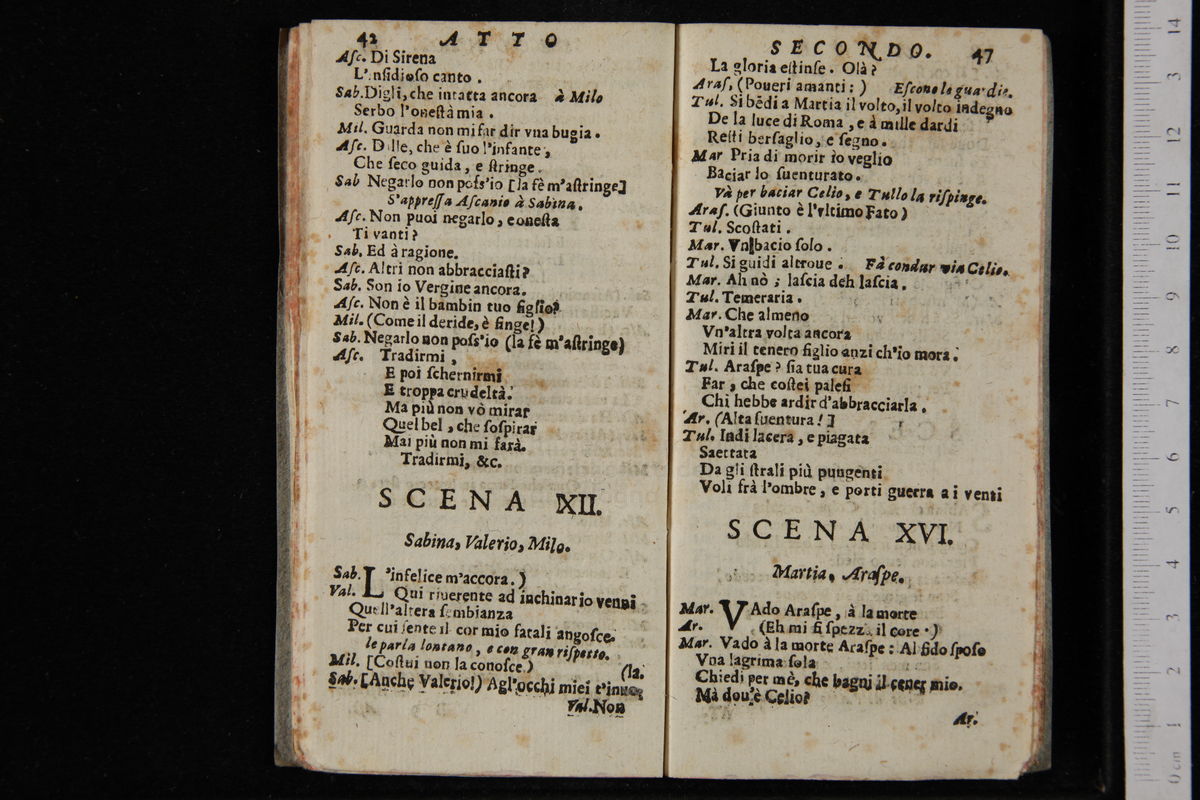 42 ATTO
Asc. Di Sirena
L'insidioso canto.
Sab. Digli, che intatta ancora à Milo
Serbo l'onestà mia.
Mil. Guarda non mi far dir vna bugia.
Asc. Dille, che è suo l'infante,
Che seco guida, e stringe.
Sab Negarlo non poss'io [la fè m'astringe]
S'appressa Ascanio à Sabina.
Asc. Non puoi negarlo, e onesta
Ti vanti?
Sab. Ed à ragione.
Asc. Altri non abbracciasti?
Sab. Son io Vergine ancora.
Asc. Non è il bambin tuo figlio?
Mil. (Come il deride, è finge!)
Sab. Negarlo non poss'io (la fè m'astringe)
Asc. Tradirmi,
E poi schernirmi
E troppa crudeltà.
Ma più non vò mirar
Quel bel, che sospirar
Mai più non mi farà.
Tradirmi, &c.
SCENA XII.
Sabina, Valerio, Milo.
Sab. L'infelice m'accora.)
Val. Qui riuerente ad inchinar io venni
Quell'altera sembianza
Per cui sente il cor mio fatali angosce.
le parla lontano, e con gran rispetto.
Mil. [Costui non la conosce.)
(la.
Sab. [Anche Valerio!) Agl'occhi miei t'inuo-
Val. Non
SECONDO. 47
La gloria estinse. Olà?
Aras. (Poueri amanti:) Escono le guardie.
Tul. Si bēdi a Martia il volto, il volto indegno
De la luce di Roma, e à mille dardi
Resti bersaglio, e segno.
Mar Pria di morir io veglio
Baciar lo suenturato.
Và per baciar Celio, e Tullo la rispinge.
Aras. (Giunto è l'vltimo Fato)
Tul. Scostati.
Mar. Vn bacio solo.
Tul. Si guidi altroue. Fà condur via Celio.
Mar. Ah nò; lascia deh lascia.
Tul. Temeraria.
Mar. Che almeno
Vn'altra volta ancora
Miri il tenero figlio anzi ch'io mora.
Tul. Araspe? sia tua cura
Far, che costei palesi
Chi hebbe ardir d'abbracciarla.
Ar. (Alta suentura!]
Tul. Indi lacera, e piagata
Saettata
Da gli strali più pungenti
Voli frà l'ombre, e porti guerra a i venti
SCENA XVI.
Martia, Araspe.
Mar. VAdo Araspe, à la morte
Ar. (Eh mi si spezza il core.)
Mar. Vado à la morte Araspe: Al fido sposo
Vna lagrima sola
Chiedi per mè, che bagni il cener mio.
Mà dou'è Celio?
Ar.